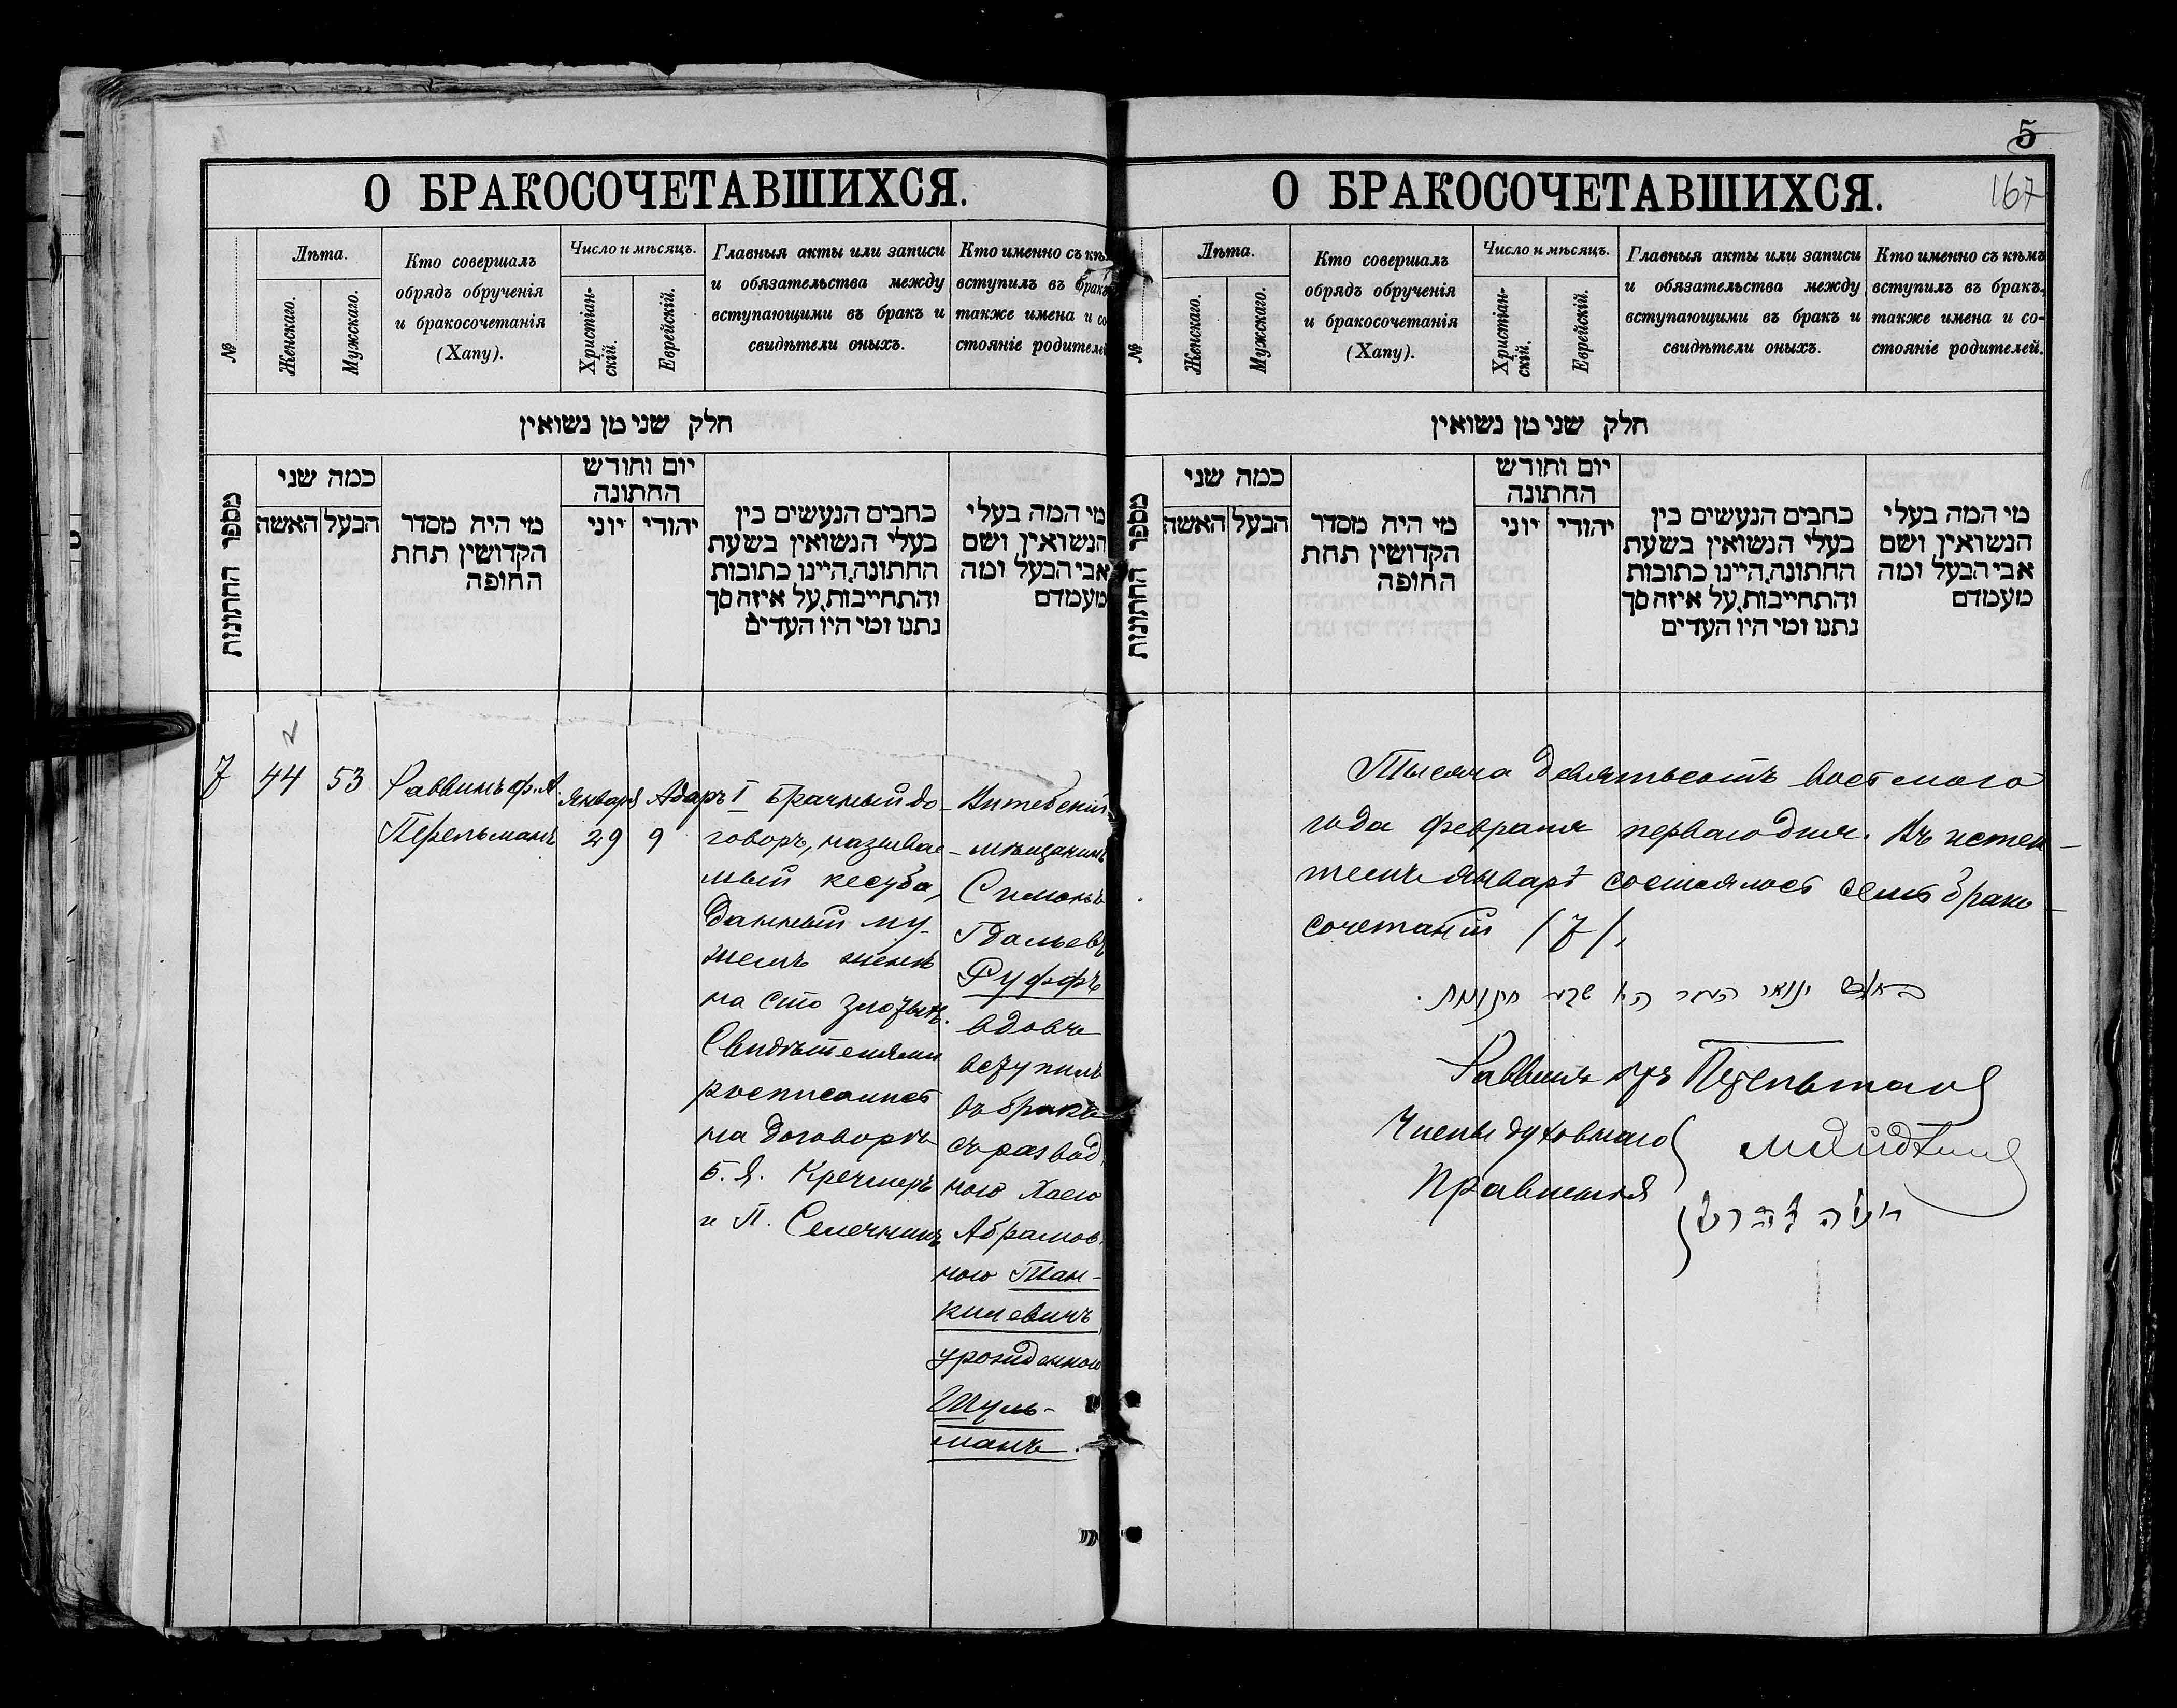 О БРАКОСОЧЕТАВШИХСЯ.
№
Лѣта.
Женскаго.
Мужскаго.
Кто совершалъ
обрядъ обрученія
и бракосочетанія
(Хапу).
Число и мѣсяцъ.
Христіан-
скій.
Еврейскій.
Главныя акты или записи
и обязательства между
вступающими въ бракъ и
свидѣтели оныхъ.
Кто именно съ кѣ
вступилъ въ бракъ
также имена и со
стояніе родителей
חלק שני מן נשואין
מספר החתונות
כמה שני
הבעל
האשה
מי היה מסדר
הקדושין תחת
החופה
יום וחודש
החתונה
יהודי
יוני
כתבים הנעשים בין
בעלי הנשואין בשעת
החתונה, היינו כתובות
והתחייבות, על איזה סך
נתנו ומי היו העדים
מי המה בעלי
הנשואין, ושם
אבי הבעל ומה
מעמדם
7
44
53
Раввинъ ф. А.
Перельманъ
Января
29
Адаръ I
9
Брачный до-
говоръ, называе-
мый кесуба,
данный му-
жемъ женѣ
на сто злотыхъ.
Свидѣтелями
росписались
на договорѣ
Б. Я. Кречмеръ
и П. Селечникъ
Витебскій
мѣщанинъ
Симонъ
Гдальевъ
Руффъ
вдовъ
вступилъ
въ бракъ
съ развод
ною Хаею
Абрамов
ною Тан-
килевичъ
урожденною
Шуль-
манъ.
5
О БРАКОСОЧЕТАВШИХСЯ.
167
№
Лѣта.
Женскаго.
Мужскаго.
Кто совершалъ
обрядъ обрученія
и бракосочетанія
(Хапу).
Число и мѣсяцъ.
Христіан-
скій.
Еврейскій.
Главныя акты или записи
и обязательства между
вступающими въ бракъ и
свидѣтели оныхъ.
Кто именно съ кѣмъ
вступилъ въ бракъ,
также имена и со-
стояніе родителей.
חלק שני מן נשואין
מספר החתונות
כמה שני
הבעל
האשה
מי היה מסדר
הקדושין תחת
החופה
יום וחודש
החתונה
יהודי
יוני
כתבים הנעשים בין
בעלי הנשואין בשעת
החתונה, היינו כתובות
והתחייבות, על איזה סך
נתנו ומי היו העדים
מי המה בעלי
הנשואין, ושם
אבי הבעל ומה
מעמדם
Тысяча девятьсотъ восьмого
года февраля перваго дня. Въ истек-
шемъ январѣ состоялось семь брако-
сочетаній /7/.
ינואר העבר היו שבע חתונות
Раввинъ Перельманъ
Члены духовнаго
Правленія